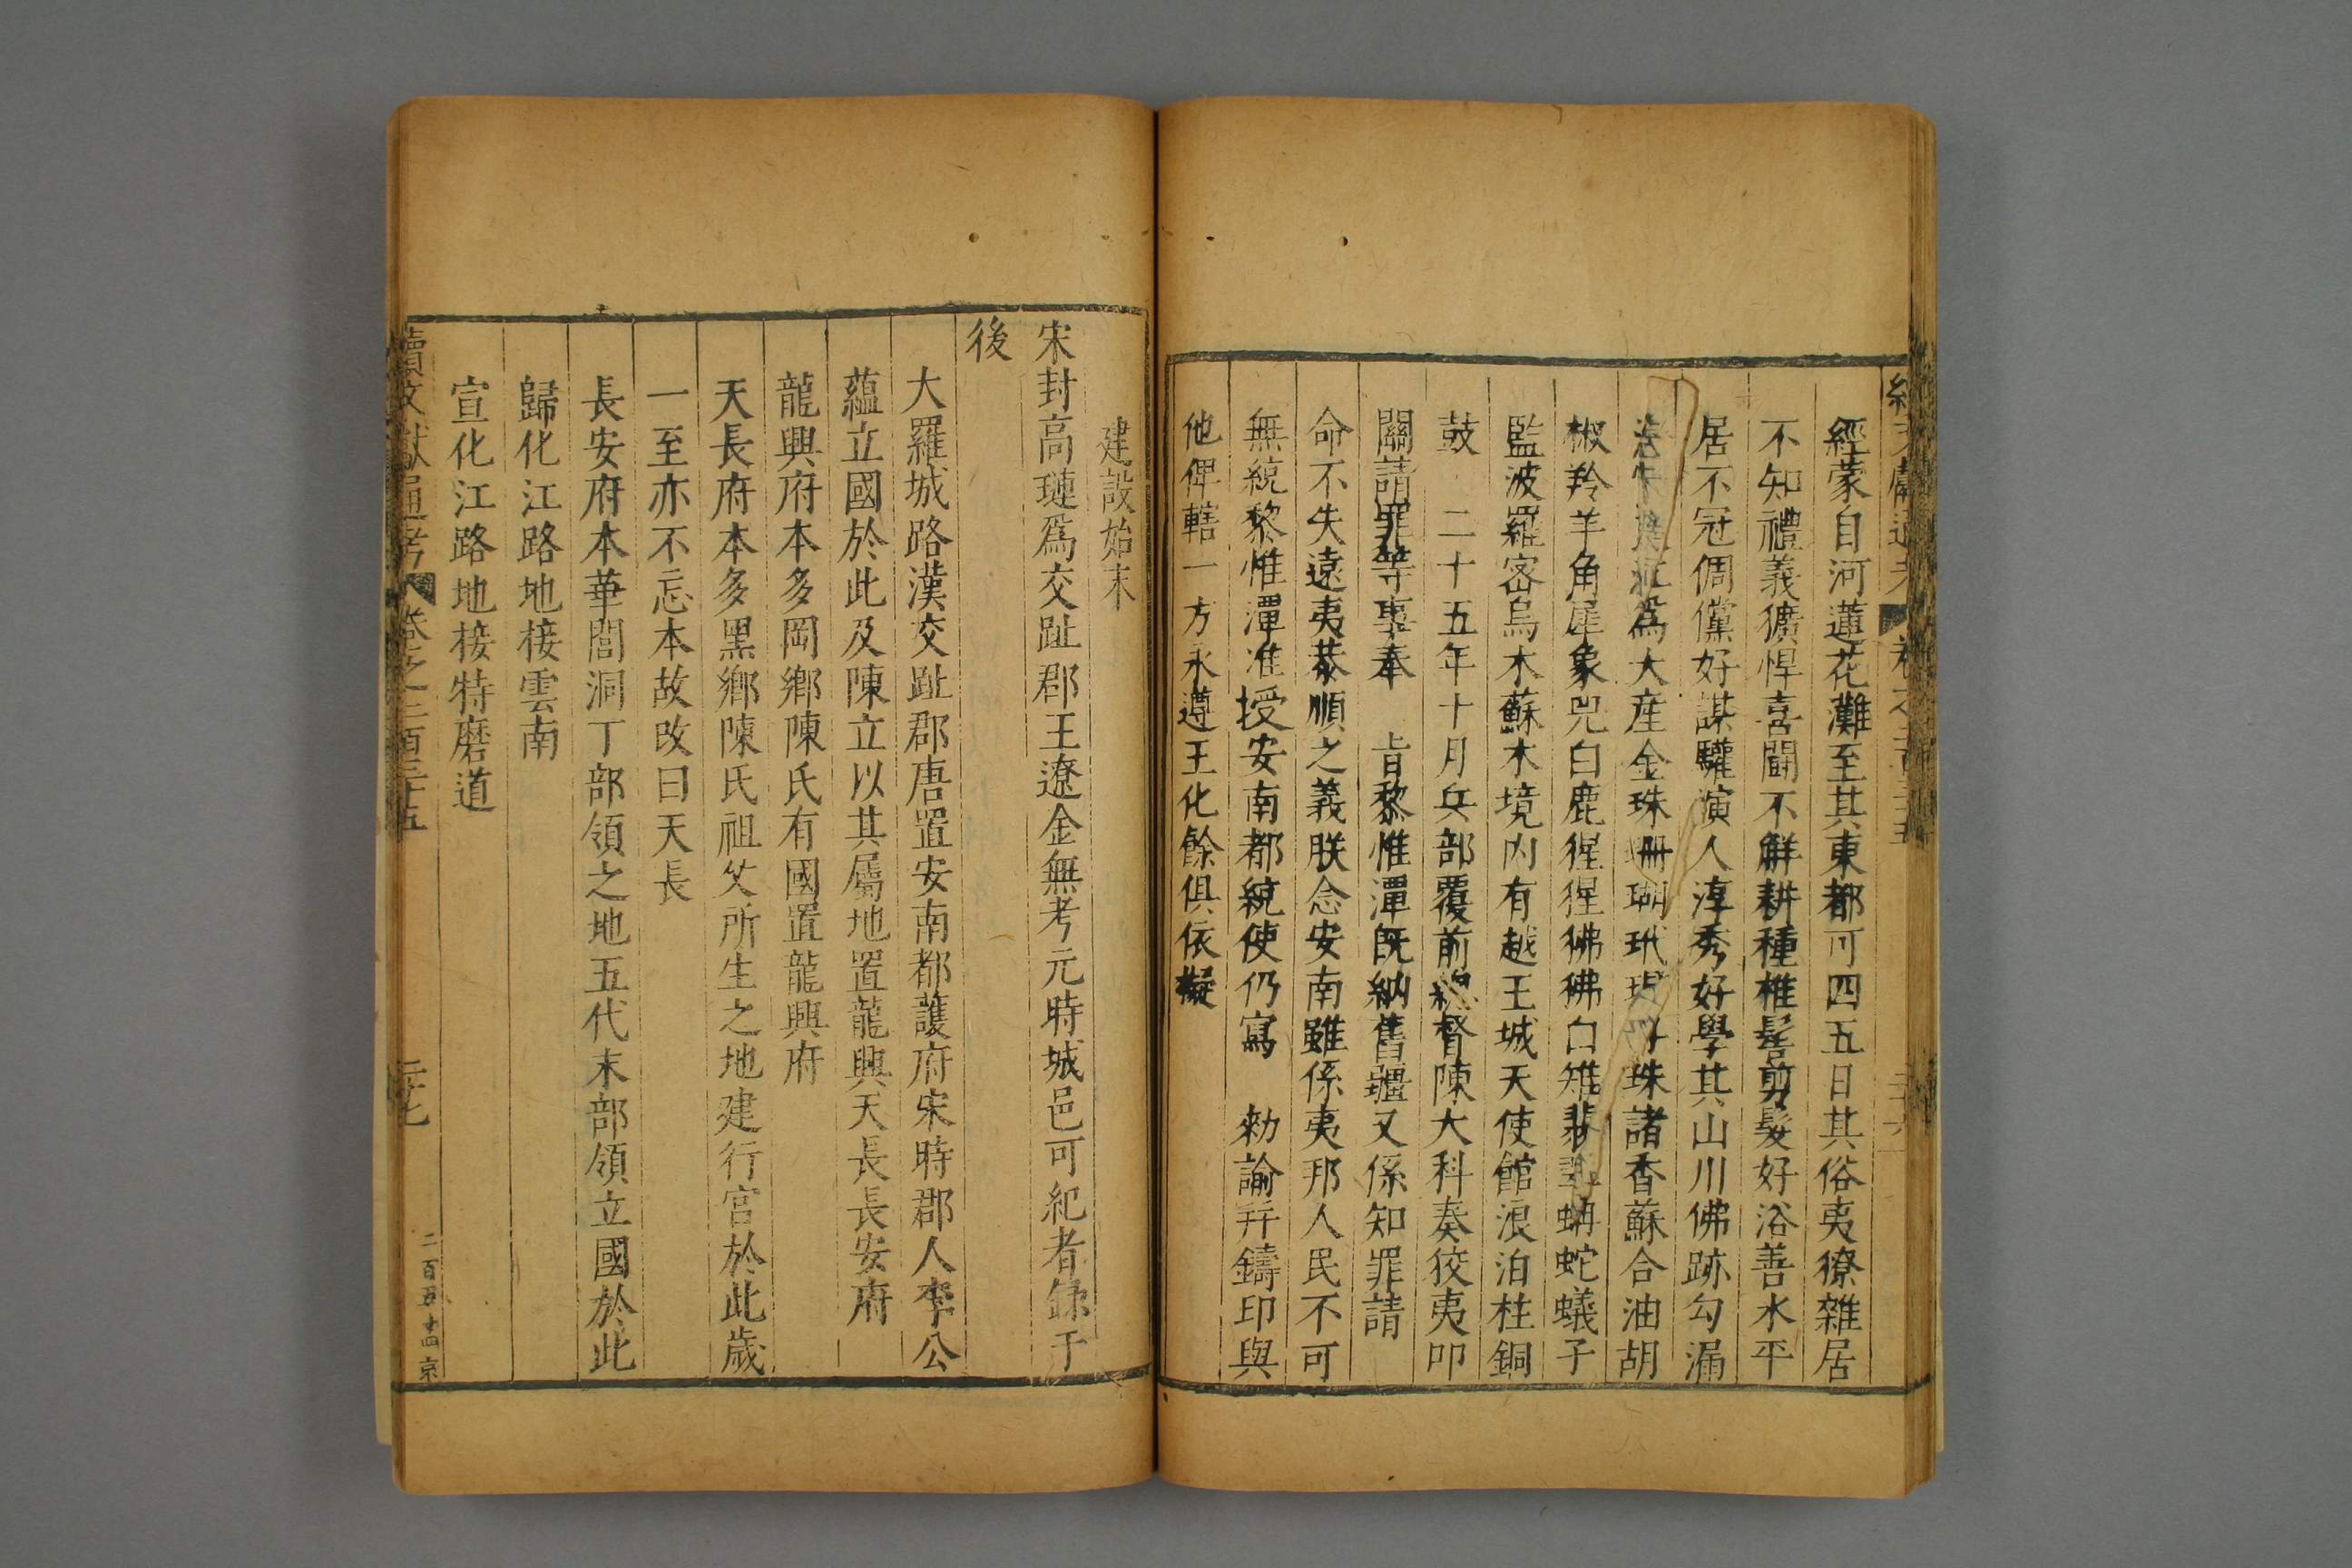 經蒙自河蓮花灘至其東都可四五日其俗夷獠雜居
不知禮義獷悍喜鬪不解耕種椎髻剪髮好浴善水平
居不冠倜儻好謀驩演人淳秀好學其山川佛跡勾漏
爲大産金珠珊瑚玳瑁珠諸香蘇合油胡
椒羚羊角犀象兕白鹿猩猩狒狒白雉翡翠蚺蛇蟻子
鹽波羅密烏木蘇木境内有越王城天使館浪泊柱銅
鼓 二十五年十月兵部覆前總督陳大科奏狡夷叩
關請罪等事奉 旨黎惟潭既納舊疆又係知罪請
命不失遠夷恭順之義朕念安南雖係夷邦人民不可
無統黎惟潭准授安南都統使仍寫 勑諭并鑄印與
他俾轄一方永遵王化餘俱依擬
建設始末
宋封高璉爲交趾郡王遼金無考元時城邑可紀者錄于
後
大羅城路漢交趾郡唐置安南都護府宋時郡人李公
蘊立國於此及陳立以其屬地置龍興天長長安府
龍興府本多岡鄉陳氏有國置龍興府
天長府本多黑鄉陳氏祖父所生之地建行宮於此歲
一至亦不忘本故改曰天長
長安府本華閭洞丁部領之地五代末部領立國於此
歸化江路地接雲南
宣化江路地接特磨道
續文獻通考 卷之二百三十五 二十七 二百五十四 京